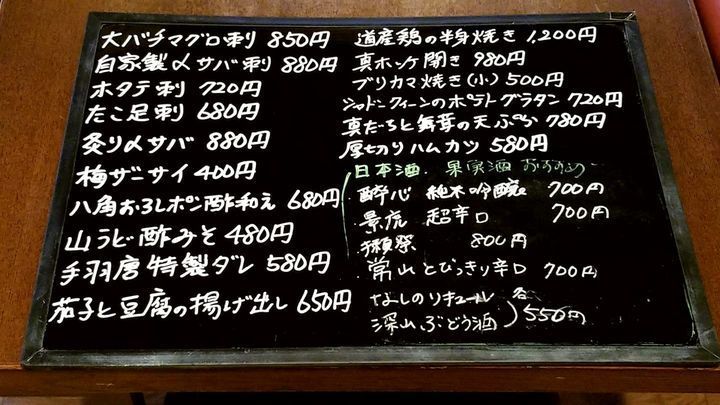 大バチマグロ刺 850円
自家製〆サバ刺 880円
ホタテ刺 720円
たこ足刺 680円
炙り〆サバ 880円
梅ザーサイ 400円
八角おろしポン酢和え 680円
山うど酢みそ 480円
手羽唐特製ダレ 580円
茄子と豆腐の揚げ出し 650円
道産鶏の半身焼き 1,200円
真ホッケ開き 980円
ブリカマ焼き(小) 500円
シャドークィーンのポテトグラタン 720円
真たちと舞茸の天ぷら 780円
厚切りハムカツ 580円
日本酒・果実酒 おすすめ
酔心 純米吟醸 700円
景虎 超辛口 700円
獺祭 800円
常山 とびっきり辛口 700円
なしのリキュール
深山ぶどう酒
各 550円